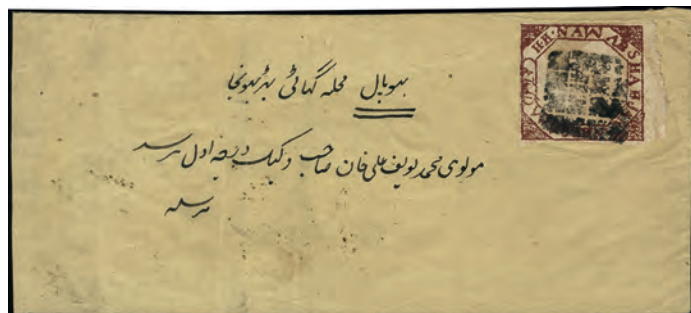 H.H. NAWAB SHAH
بھوپال محلہ گھاٹی بھڑبھونجا
مولوی محمد یوسف علی خان صاحب وکیل درجہ اول برسد
مرسلہ